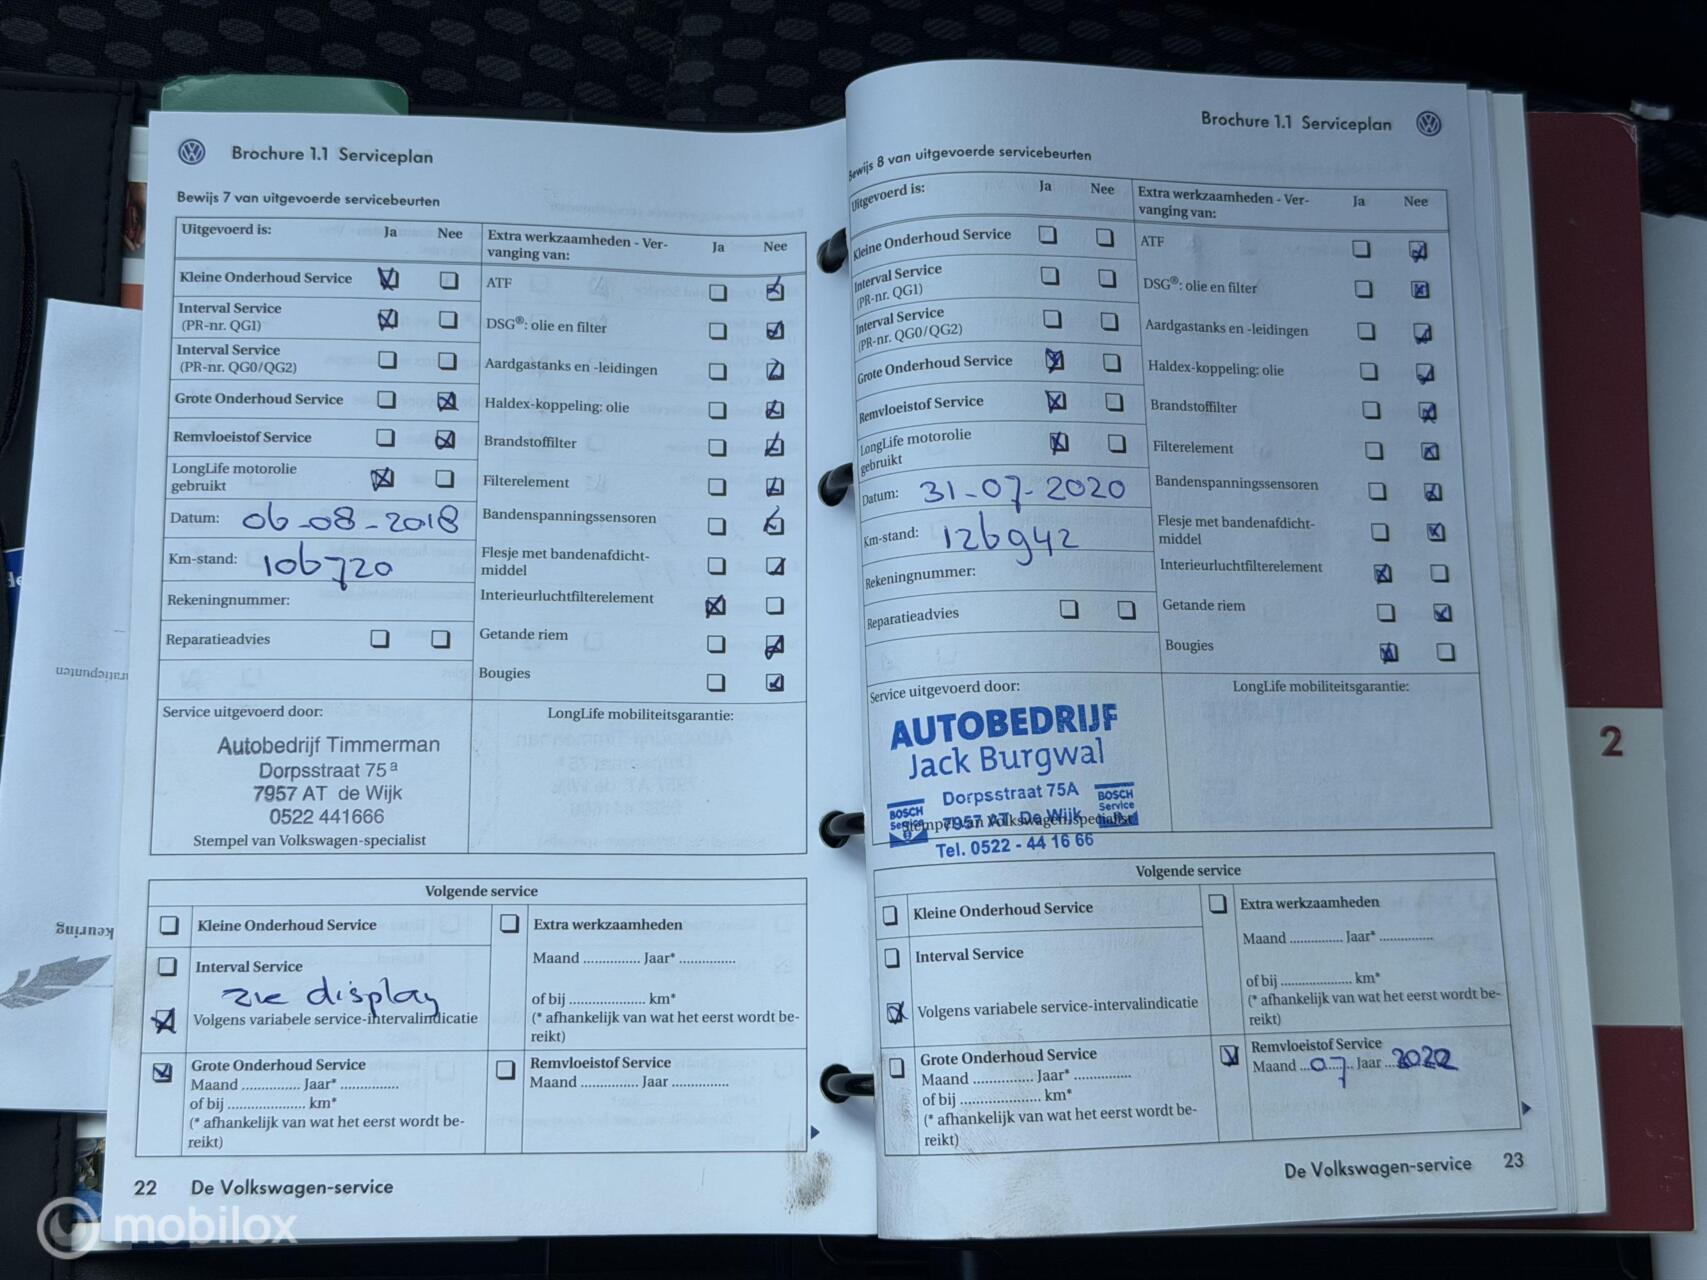 Brochure 1.1 Serviceplan
Bewijs 7 van uitgevoerde servicebeurten
Uitgevoerd is: Ja Nee
Kleine Onderhoud Service
Interval Service
(PR-nr. QG1)
Interval Service
(PR-nr. QG0/QG2)
Grote Onderhoud Service
Remvloeistof Service
LongLife motorolie
gebruikt
Datum: 06-08-2018
Km-stand: 106720
Rekeningnummer:
Reparatieadvies
Extra werkzaamheden - Ver-
vanging van: Ja Nee
ATF
DSG®: olie en filter
Aardgastanks en -leidingen
Haldex-koppeling: olie
Brandstoffilter
Filterelement
Bandenspanningssensoren
Flesje met bandenafdicht-
middel
Interieurluchtfilterelement
Getande riem
Bougies
Service uitgevoerd door:
Autobedrijf Timmerman
Dorpsstraat 75a
7957 AT de Wijk
0522 441666
Stempel van Volkswagen-specialist
LongLife mobiliteitsgarantie:
Volgende service
Kleine Onderhoud Service
Interval Service
zie display
Volgens variabele service-intervalindicatie
Grote Onderhoud Service
Maand ............... Jaar* ...............
of bij .................... km*
(* afhankelijk van wat het eerst wordt be-
reikt)
Extra werkzaamheden
Maand ............... Jaar* ...............
of bij .................... km*
(* afhankelijk van wat het eerst wordt be-
reikt)
Remvloeistof Service
Maand ............... Jaar ...............
22 De Volkswagen-service
Brochure 1.1 Serviceplan
Bewijs 8 van uitgevoerde servicebeurten
Uitgevoerd is: Ja Nee
Kleine Onderhoud Service
Interval Service
(PR-nr. QG1)
Interval Service
(PR-nr. QG0/QG2)
Grote Onderhoud Service
Remvloeistof Service
LongLife motorolie
gebruikt
Datum: 31-07-2020
Km-stand: 126942
Rekeningnummer:
Reparatieadvies
Extra werkzaamheden - Ver-
vanging van: Ja Nee
ATF
DSG®: olie en filter
Aardgastanks en -leidingen
Haldex-koppeling: olie
Brandstoffilter
Filterelement
Bandenspanningssensoren
Flesje met bandenafdicht-
middel
Interieurluchtfilterelement
Getande riem
Bougies
Service uitgevoerd door:
AUTOBEDRIJF
Jack Burgwal
Dorpsstraat 75A
BOSCH
Service
BOSCH
Service
7957 AT De Wijk
Stempel van Volkswagen-specialist
Tel. 0522 - 44 16 66
LongLife mobiliteitsgarantie:
Volgende service
Kleine Onderhoud Service
Interval Service
Volgens variabele service-intervalindicatie
Grote Onderhoud Service
Maand ............... Jaar* ...............
of bij .................... km*
(* afhankelijk van wat het eerst wordt be-
reikt)
Extra werkzaamheden
Maand ............... Jaar* ...............
of bij .................... km*
(* afhankelijk van wat het eerst wordt be-
reikt)
Remvloeistof Service
Maand ...07... Jaar ...2022
De Volkswagen-service 23
2
keuring
mobilox